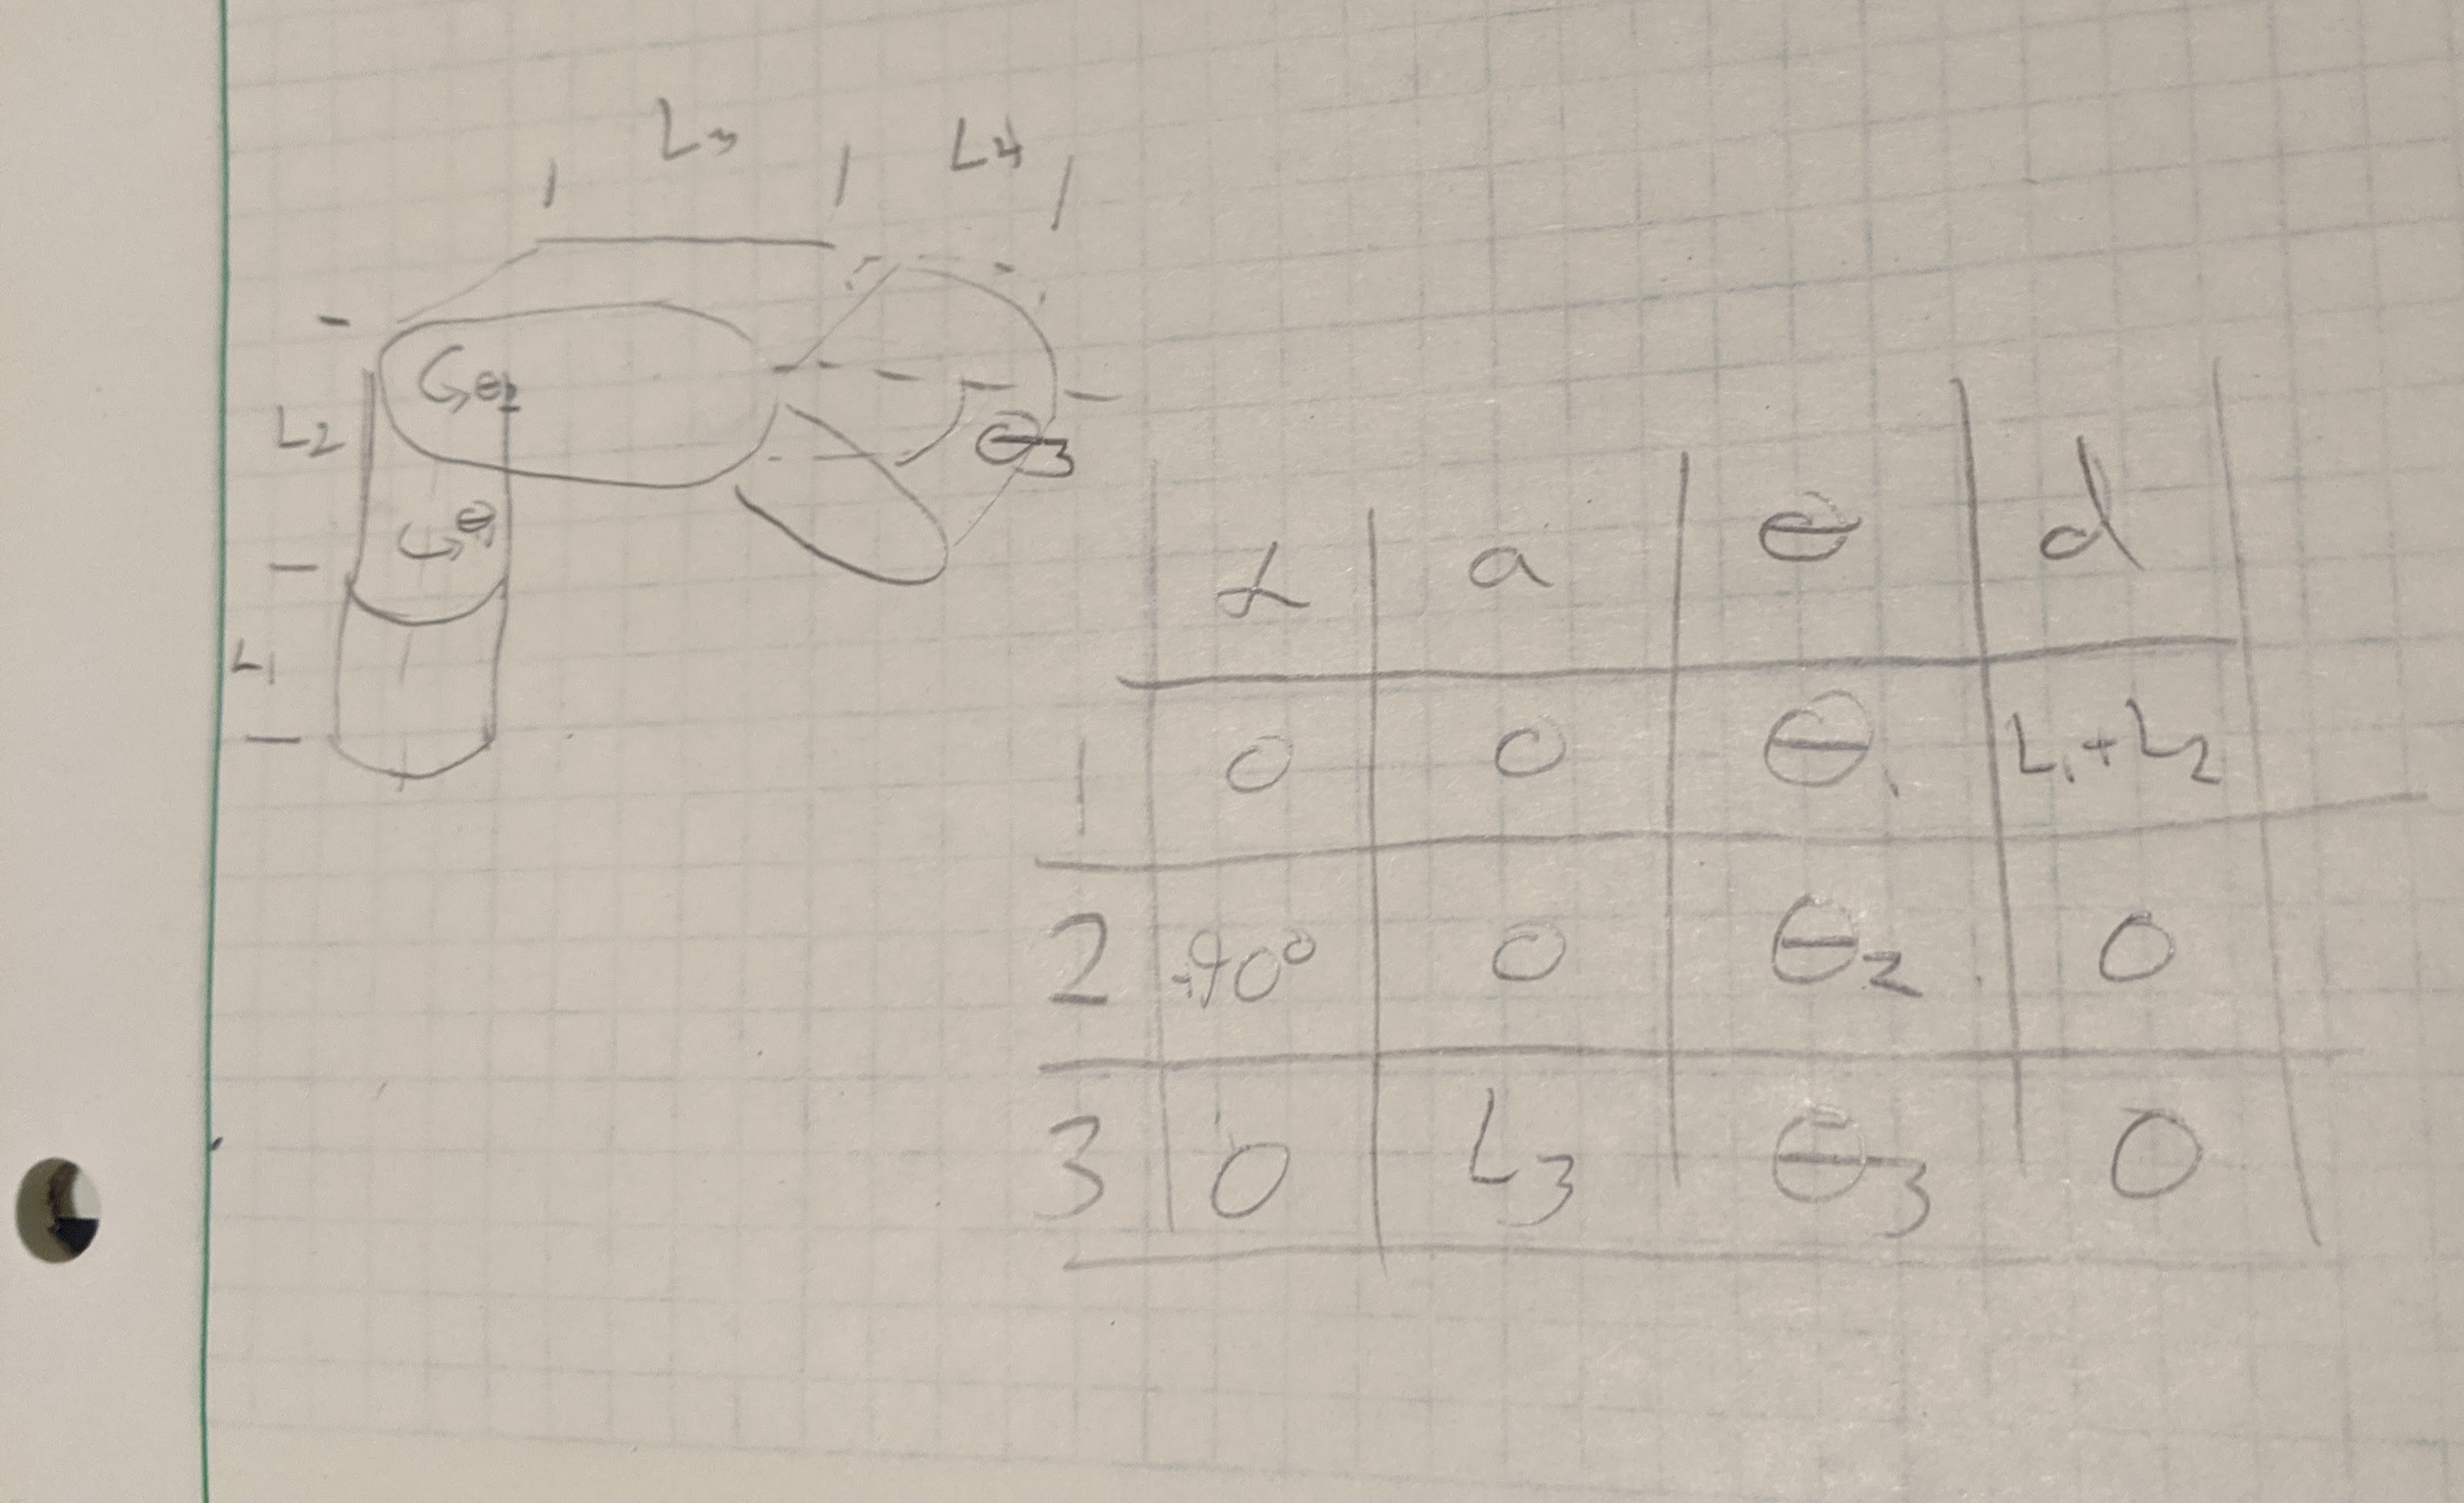 L3 L4
θ2
L2
θ1
θ3
L1
α a θ d
1 0 0 θ1 L1+L2
2 -90° 0 θ2 0
3 0 L3 θ3 0